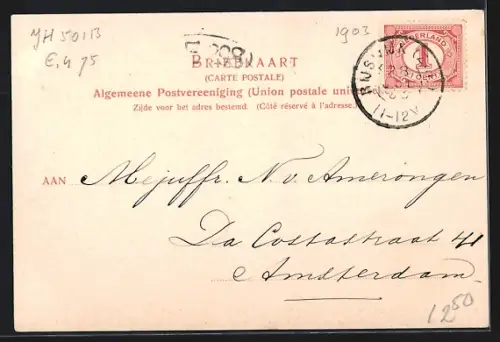 JH 501B
E.4 75
1903
BRIEFKAART
(CARTE POSTALE)
Algemeene Postvereeniging (Union postale uni
Zijde voor het adres bestemd. (Côté réservé à l'adresse.)
NEDERLAND
1
11-12V
AAN Mejuffr. N. v. Amerongen
Da Costastraat 41
Amsterdam
1250